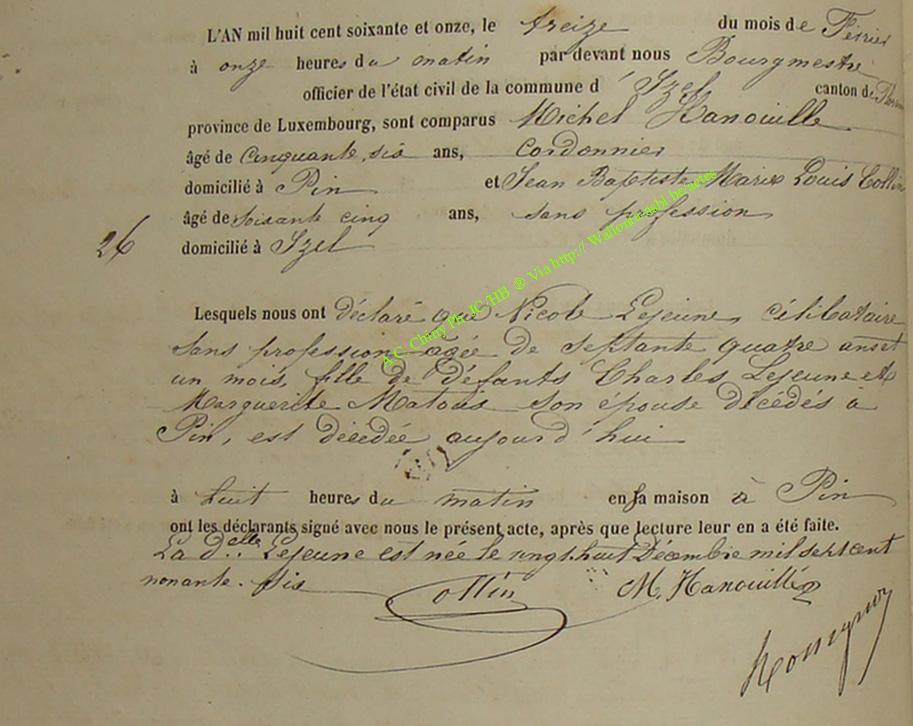 L'AN mil huit cent soixante et onze, le treize du mois de Février
à onze heures du matin par devant nous Bourgmestre
officier de l'état civil de la commune d' Izel canton de
province de Luxembourg, sont comparus Michel Hanouille
âgé de cinquante six ans, cordonnier
domicilié à Pin et Jean Baptiste Marie Louis Collin
âgé de soixante cinq ans, sans profession
26 domicilié à Izel
Lesquels nous ont déclaré que Nicole Lejeune, célibataire
sans profession âgée de septante quatre ans et
un mois, fille de défunts Charles Lejeune et
Marguerite Matous son épouse décédés à
Pin, est décédée aujourd'hui
à huit heures du matin en sa maison à Pin
ont les déclarants signé avec nous le présent acte, après que lecture leur en a été faite.
La d.elle Lejeune est née le vingt huit Décembre mil sept cent
nonante-six Collin M. Hanouille
A.C. Chiny Ph. JC/HB ® Via http:// Wallonia asbl.be/actes